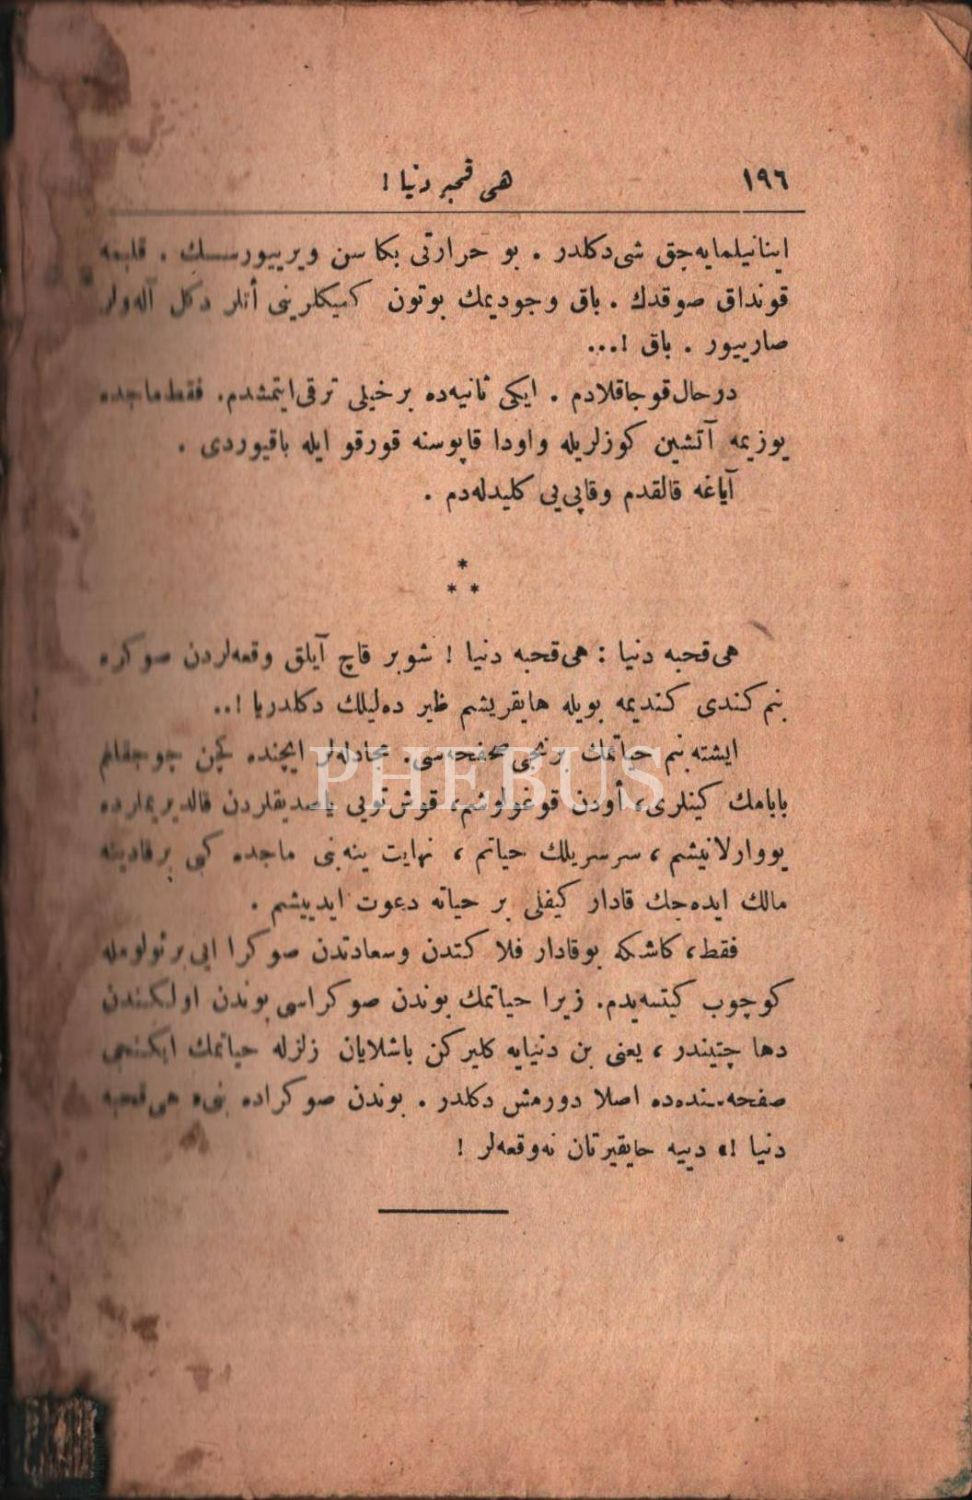 ١٩٦
هی قحبه دنیا !
اینانیلمایه‌جق شی‌دکلدر . بو حرارتی بکا سن ویرییورسـك . قلبمه
قونداق صوقدك . باق وجودیمك بوتون کمیکلرینی أتلر دکل آله‌ولر
صارییور . باق !...
درحال‌قوجاقلادم . ایکی ثانیه‌ده برخیلی ترقی‌ایتمشدم. فقط‌ماجده
یوزیمه آتشین کوزلریله واودا قاپوسنه قورقو ایله باقیوردی .
آیاغه قالقدم وقاپی‌یی کلیدله‌دم .
* * *
هی‌قحبه دنیا : هی‌قحبه دنیا ! شوبر قاچ آیلق وقعه‌لردن صوکره
بنم‌کندی کندیمه بویله هایقریشم ظیر ده‌لیلك دکلدریا !..
ایشته‌بنم حیاتمك برنجی‌صحفه‌سی. مجادله‌لر ایچنده کچن چوجقلغم
بابامك کینلری، أودن قوغولوشم، قوش‌تویی یاصدیقلردن قالدیریملرده
یووارلانیشم ، سرسریلك حیاتم ، نهایت ینه‌بنی ماجده کبی برقادینه
مالك ایده‌جك قادار کیفلی بر حیاته دعوت ایدییشم .
فقط، کاشکه بوقادار فلاکتدن وسعادتدن صوکرا ایی برئولومله
کوچوب کیتسه‌یدم. زیرا حیاتمك بوندن صوکراسی بوندن اولکیندن
دها چتیندر ، یعنی بن دنیایه کلیرکن باشلایان زلزله حیاتمك ایکنجی
صفحه‌سنده‌ده اصلا دورمش دکلدر . بوندن صوکراده بنی« هی‌قحبه
دنیا !» دییه حایقیرتان نه‌وقعه‌لر !
PHEBUS